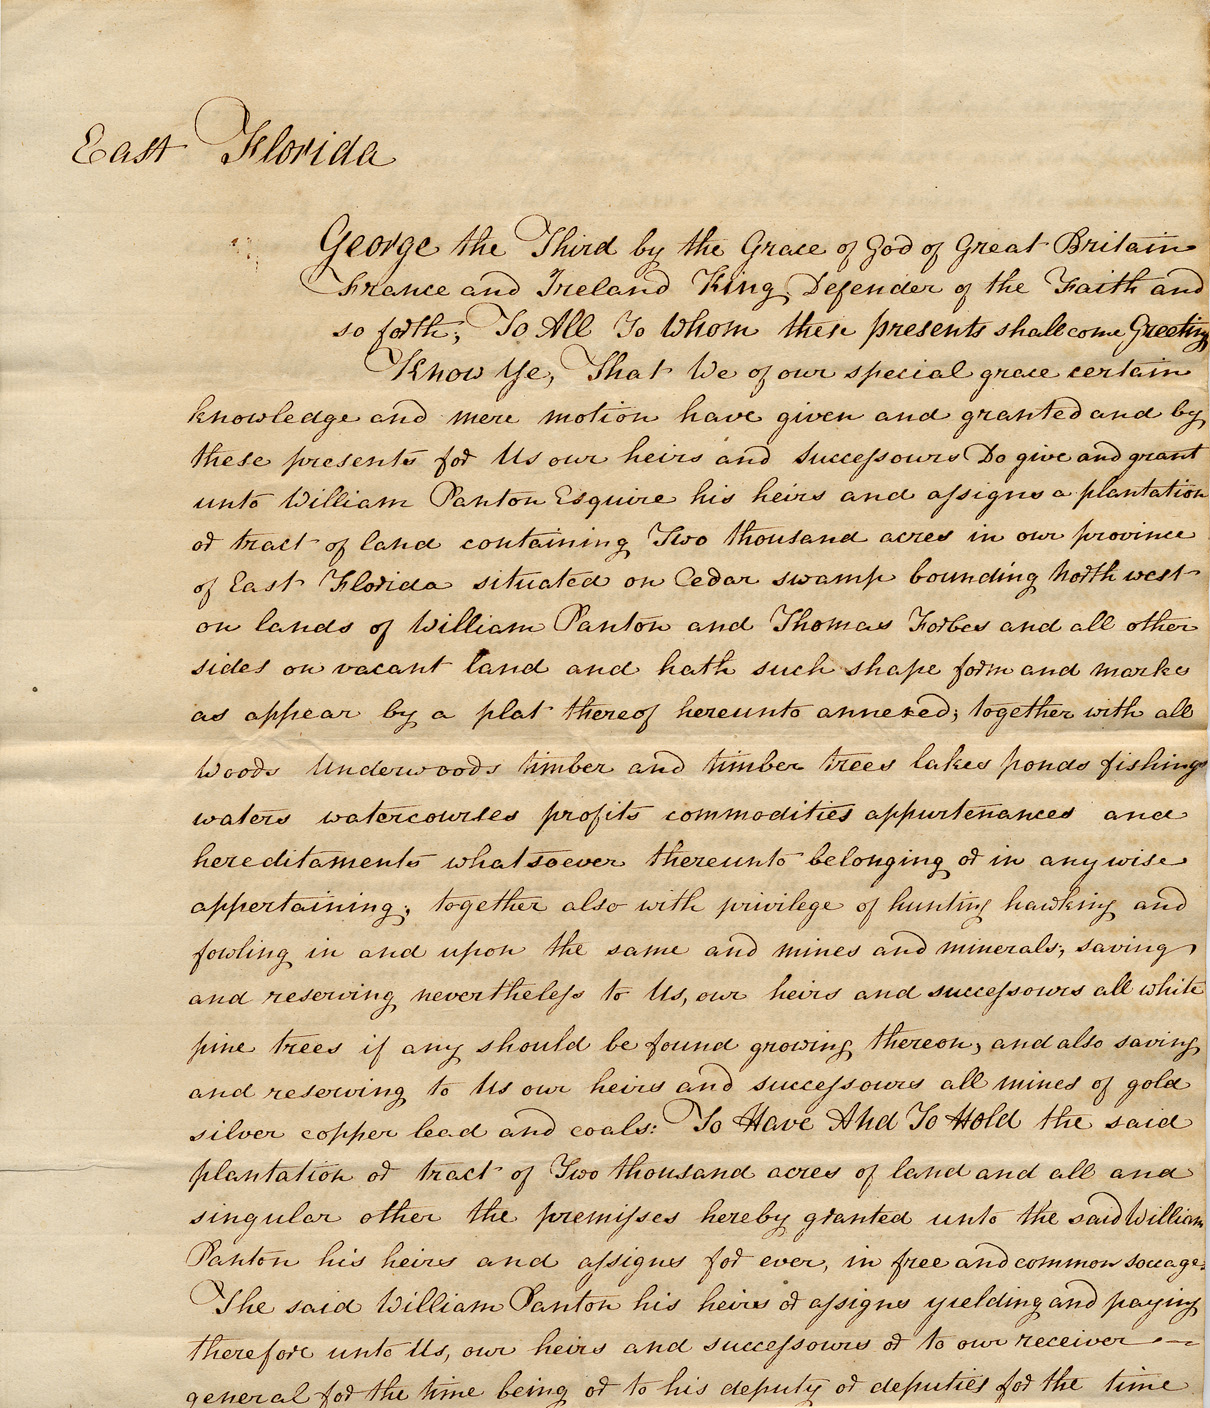 East Florida
George the Third by the Grace of God of Great Britain
France and Ireland King, Defender of the Faith and
so forth; To All To Whom these presents shall come Greeting
Know Ye, That We of our special grace certain
knowledge and mere motion have given and granted and by
these presents for Us our heirs and successours Do give and grant
unto William Panton Esquire his heirs and assigns a plantation
or tract of land containing Two thousand acres in our province
of East Florida situated on Cedar swamp bounding North west
on lands of William Panton and Thomas Forbes and all other
sides on vacant land and hath such shape form and marks
as appear by a plat thereof hereunto annexed; together with all
Woods Underwoods timber and timber trees lakes ponds fishings
waters watercourses profits commodities appurtenances and
hereditaments whatsoever thereunto belonging or in anywise
appertaining; together also with privilege of hunting hawking and
fowling in and upon the same and mines and minerals; saving
and reserving nevertheless to Us, our heirs and successours all white
pine trees if any should be found growing thereon, and also saving
and reserving to Us our heirs and successours all mines of gold
silver copper lead and coals: To Have And To Hold the said
plantation or tract of Two thousand acres of land and all and
singular other the premisses hereby granted unto the said William
Panton his heirs and assigns for ever, in free and common soccage:
The said William Panton his heirs or assigns yielding and paying
therefore unto Us, our heirs and successours or to our receiver
general for the time being or to his deputy or deputies for the time